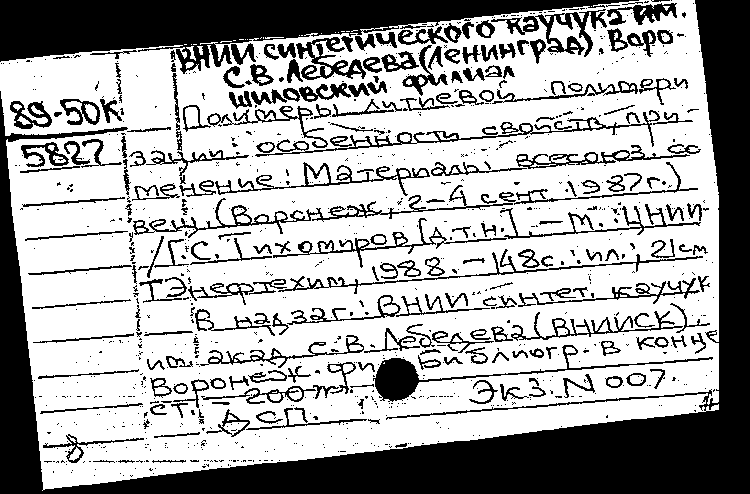 ВНИИ синтетического каучука им.
С.В. Лебедева (Ленинград). Воро-
шиловский филиал
89-50К
5827
Полимеры литиевой полимери
зации: особенности свойств, при-
менение: Материалы всесоюз. со
вещ. (Воронеж, 2-4 сент. 1987г.)
/Г.С. Тихомиров, [д.т.н.]. - М.: ЦНИИ
ТЭнефтехим, 1988. - 148с.: ил.; 21см
В надзаг.: ВНИИ синтет. каучук
им. акад. С.В. Лебедева (ВНИИСК).
Воронеж. фи Библиогр. в конце
ст. - 200 Экз. N 007.
ДСП.
8